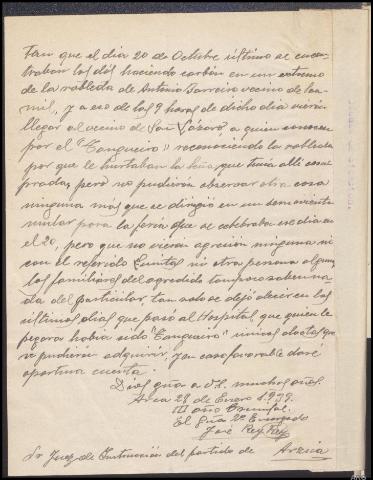 tan que el dia 20 de Octubre último se encon-
traban los dos haciendo carbón en un extremo
de la robleda de Antonio Farreiro vecino de San-
mil, y a eso de las 9 horas de dicho dia vieron
llegar al vecino de San Lázaro a quien conocen
por el "Cangueiro" reconociendo la robleda
por que le hurtaban la leña que tenia alli com-
prada, pero no pudieron observar otra cosa
ninguna más que se dirigió en un semoviente
mular para la feria que se celebraba ese dia en
el 20, pero que no vieron agresión ninguna ni
con el referido Benitas ni otra persona alguna
los familiares del agredido tampoco saben na-
da del particular, tan solo se dejó decir en los
últimos dias que pasó al Hospital, que quien le
pegara habia sido "Cangueiro" unicos datos que
se pudieron adquirir, y en caso favorable daré
oportuna cuenta.
Dios güe a V. muchos años.
Arca 28 de Enero 1.939.
III año Triunfal.
El Gúa 2º Encargado
José Rey Rey
Sr Juez de Instrucción del partido de Arzúa